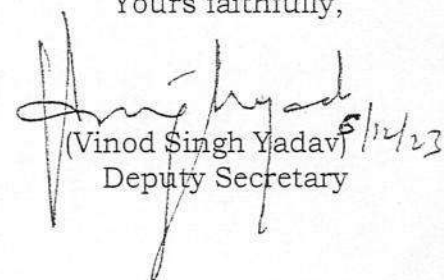 Yours faithfully,
(Vinod Singh Yadav) 5/12/23
Deputy Secretary